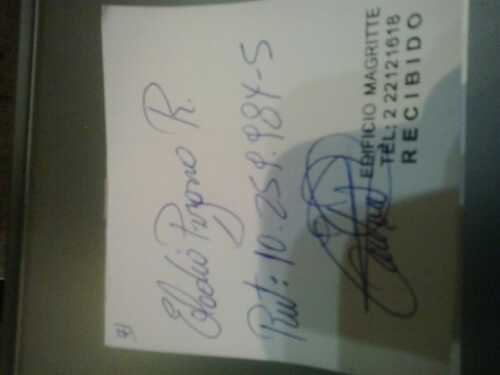 Eladio Pizarro R.
Rut: 10.259.984-5
EDIFICIO MAGRITTE
TEL: 2 22121618
RECIBIDO